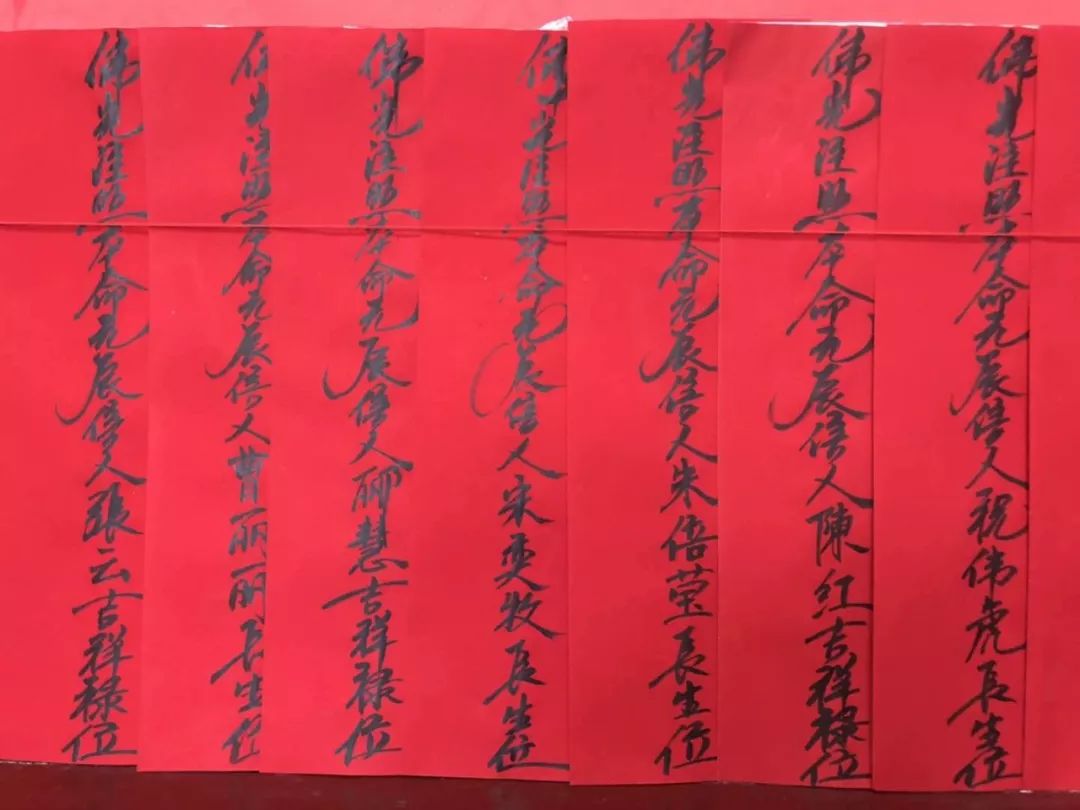 佛光注照本命元辰信人祝伟虎長生位
佛光注照本命元辰信人陳红吉祥禄位
佛光注照本命元辰信人朱倍莹長生位
佛光注照本命元辰信人宋牧長生位
佛光注照本命元辰信人慧吉祥禄位
佛光注照本命元辰信人曹丽丽長生位
佛光注照本命元辰信人張云吉祥禄位